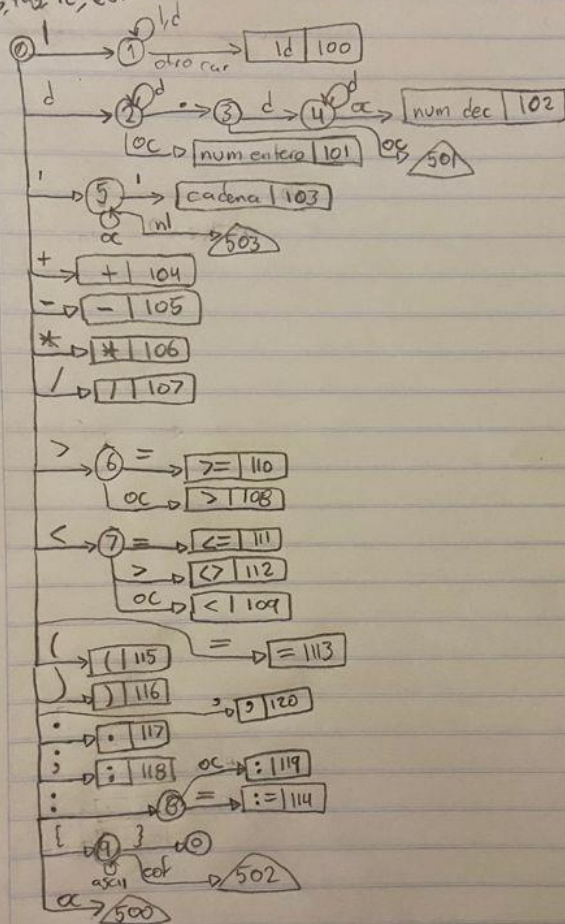 0 l 1 l,d otro car Id 100
d 2 d . 3 d 4 d oc num dec 102
oc num entero 101 oc 501
' 5 ' cadena 103
oc nl 503
+ + 104
- - 105
* * 106
/ / 107
> 6 = >= 110
oc > 108
< 7 = <= 111
> <> 112
oc < 109
= = 113
( ( 115
) ) 116
, , 120
. . 117
; ; 118
oc : 119
: 8 = := 114
{ 9 } 0
ascii eof 502
oc 500